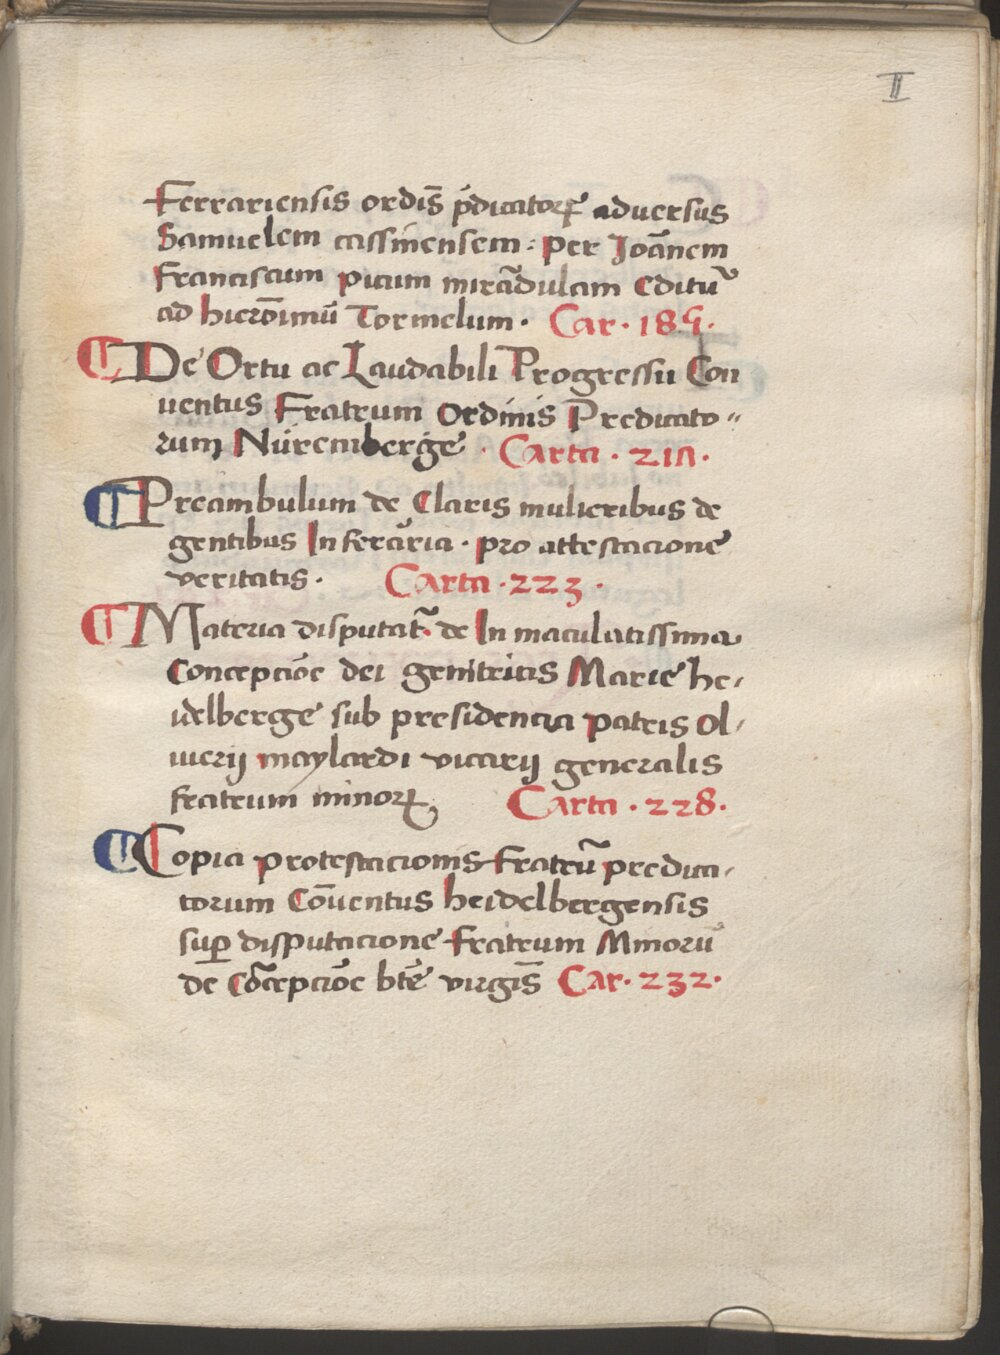 II
Ferrariensis ordīs p̄dicatorꝝ adversus
Samuelem cassinensem : per Joānem
Franciscum picum mirādulam Editū
ad hieronīmū Tormelum · Car · 185 ·
¶ De Ortu ac Laudabili Progressu Con
uentus Fratrum Ordinis Predicato〃
rum Nüremberge · Carta · 211 ·
¶ Preambulum de Claris mulieribus de
gentibus In feraria · pro attestacione
veritatis · Carta · 223 ·
¶ Materia disputat̄ · de In maculatissima
Concepcōe dei genitricis Marie he,
idelberge sub presidencia patris Ol,
iuerij maylardi vicarij generalis
fratrum minorꝝ Carta · 228 ·
¶ Copia protestacionis fratrū predica,
torum Cōuentus heidelbergensis
suꝑ disputacione fratrum Minorū
de Cōcepcōe btē virgīs Car · 232 ·